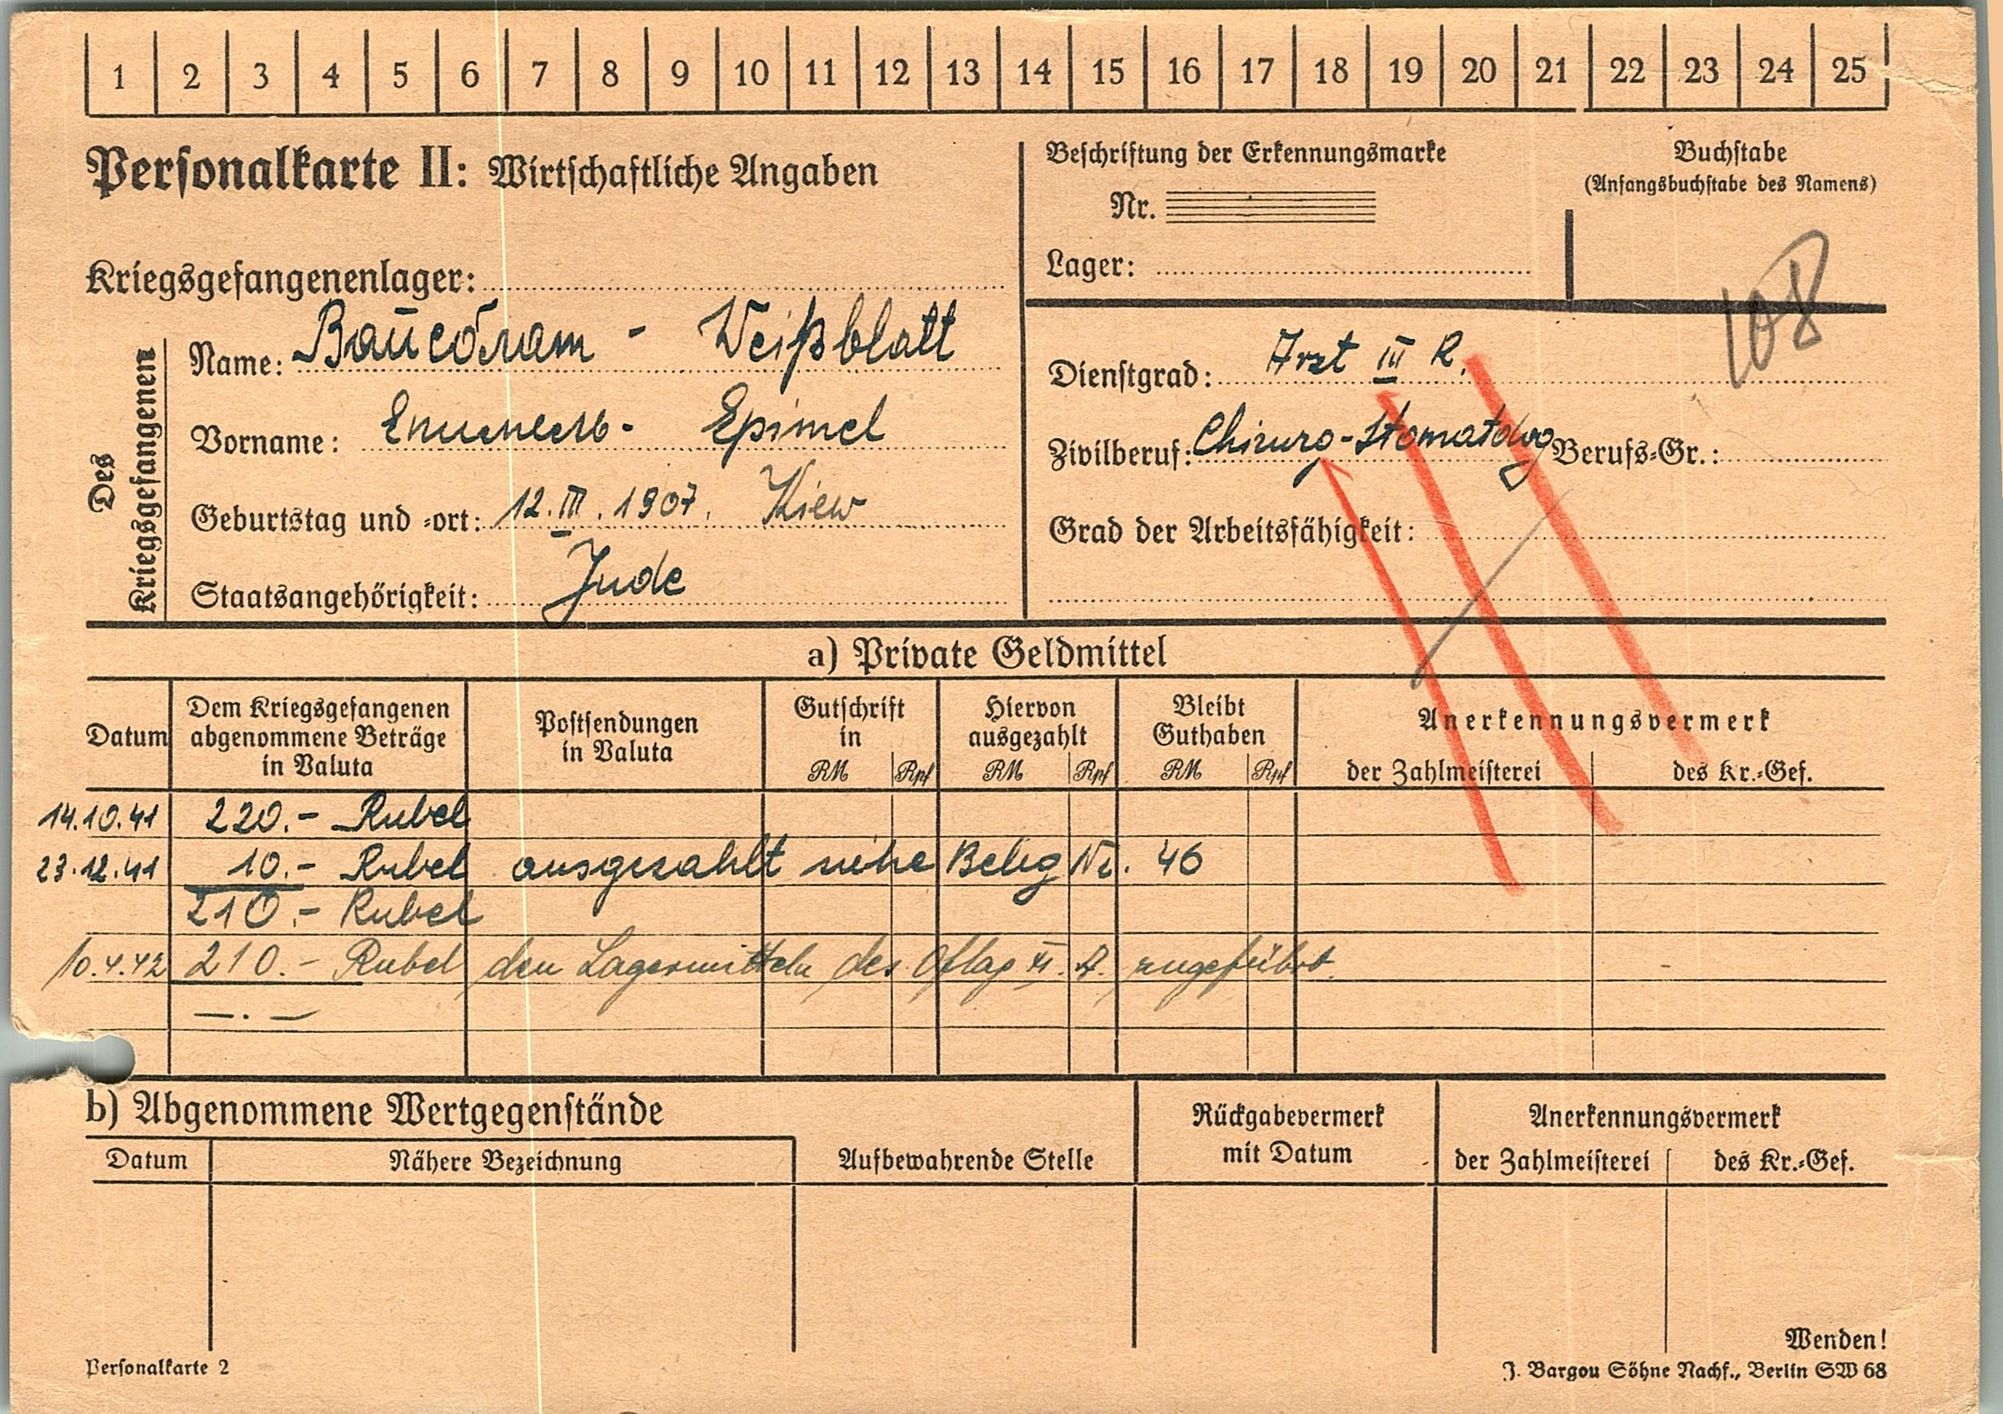 1 2 3 4 5 6 7 8 9 10 11 12 13 14 15 16 17 18 19 20 21 22 23 24 25
Personalkarte II: Wirtschaftliche Angaben
Beschriftung der Erkennungsmarke
Nr.
Lager:
Buchstabe
(Anfangsbuchstabe des Namens)
Kriegsgefangenenlager:
108
Des Kriegsgefangenen
Name: Вайсблат - Weißblatt
Vorname: Епимель - Epimel
Geburtstag und -ort: 12. III. 1907. Kiew
Staatsangehörigkeit: Jude
Dienstgrad: Arzt III R.
Zivilberuf: Chirurg-Stomatolog Berufs-Gr.:
Grad der Arbeitsfähigkeit:
a) Private Geldmittel
Datum
Dem Kriegsgefangenen abgenommene Beträge in Valuta
Postsendungen in Valuta
Gutschrift in RM Rpf
Hiervon ausgezahlt RM Rpf
Bleibt Guthaben RM Rpf
Anerkennungsvermerk
der Zahlmeisterei des Kr.-Gef.
14.10.41 220.- Rubel
23.12.41 10.- Rubel ausgezahlt siehe Beleg Nr. 46
210.- Rubel
10.4.42 210.- Rubel den Lagermitteln des Oflag XI. A. zugeführt.
b) Abgenommene Wertgegenstände
Datum Nähere Bezeichnung
Aufbewahrende Stelle
Rückgabevermerk mit Datum
Anerkennungsvermerk
der Zahlmeisterei des Kr.-Gef.
Wenden!
Personalkarte 2
J. Bargou Söhne Nachf., Berlin SW 68